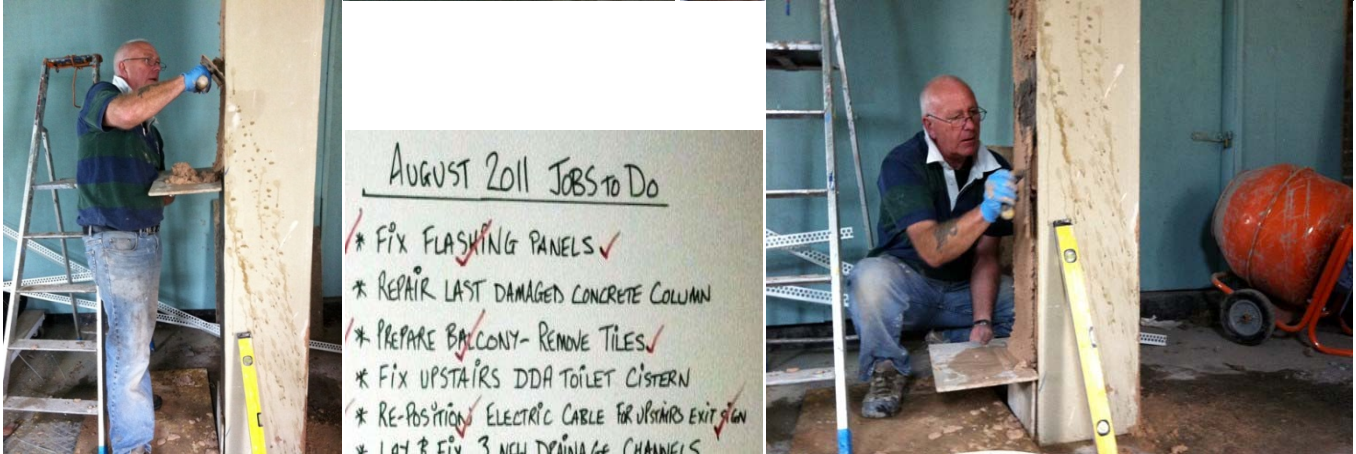 AUGUST 2011 JOBS TO DO
* FIX FLASHING PANELS
* REPAIR LAST DAMAGED CONCRETE COLUMN
* PREPARE BALCONY - REMOVE TILES
* FIX UPSTAIRS DDA TOILET CISTERN
* RE-POSITION ELECTRIC CABLE FOR UPSTAIRS EXIT SIGN
* LAY & FIX 3 NEW DRAINAGE CHANNELS